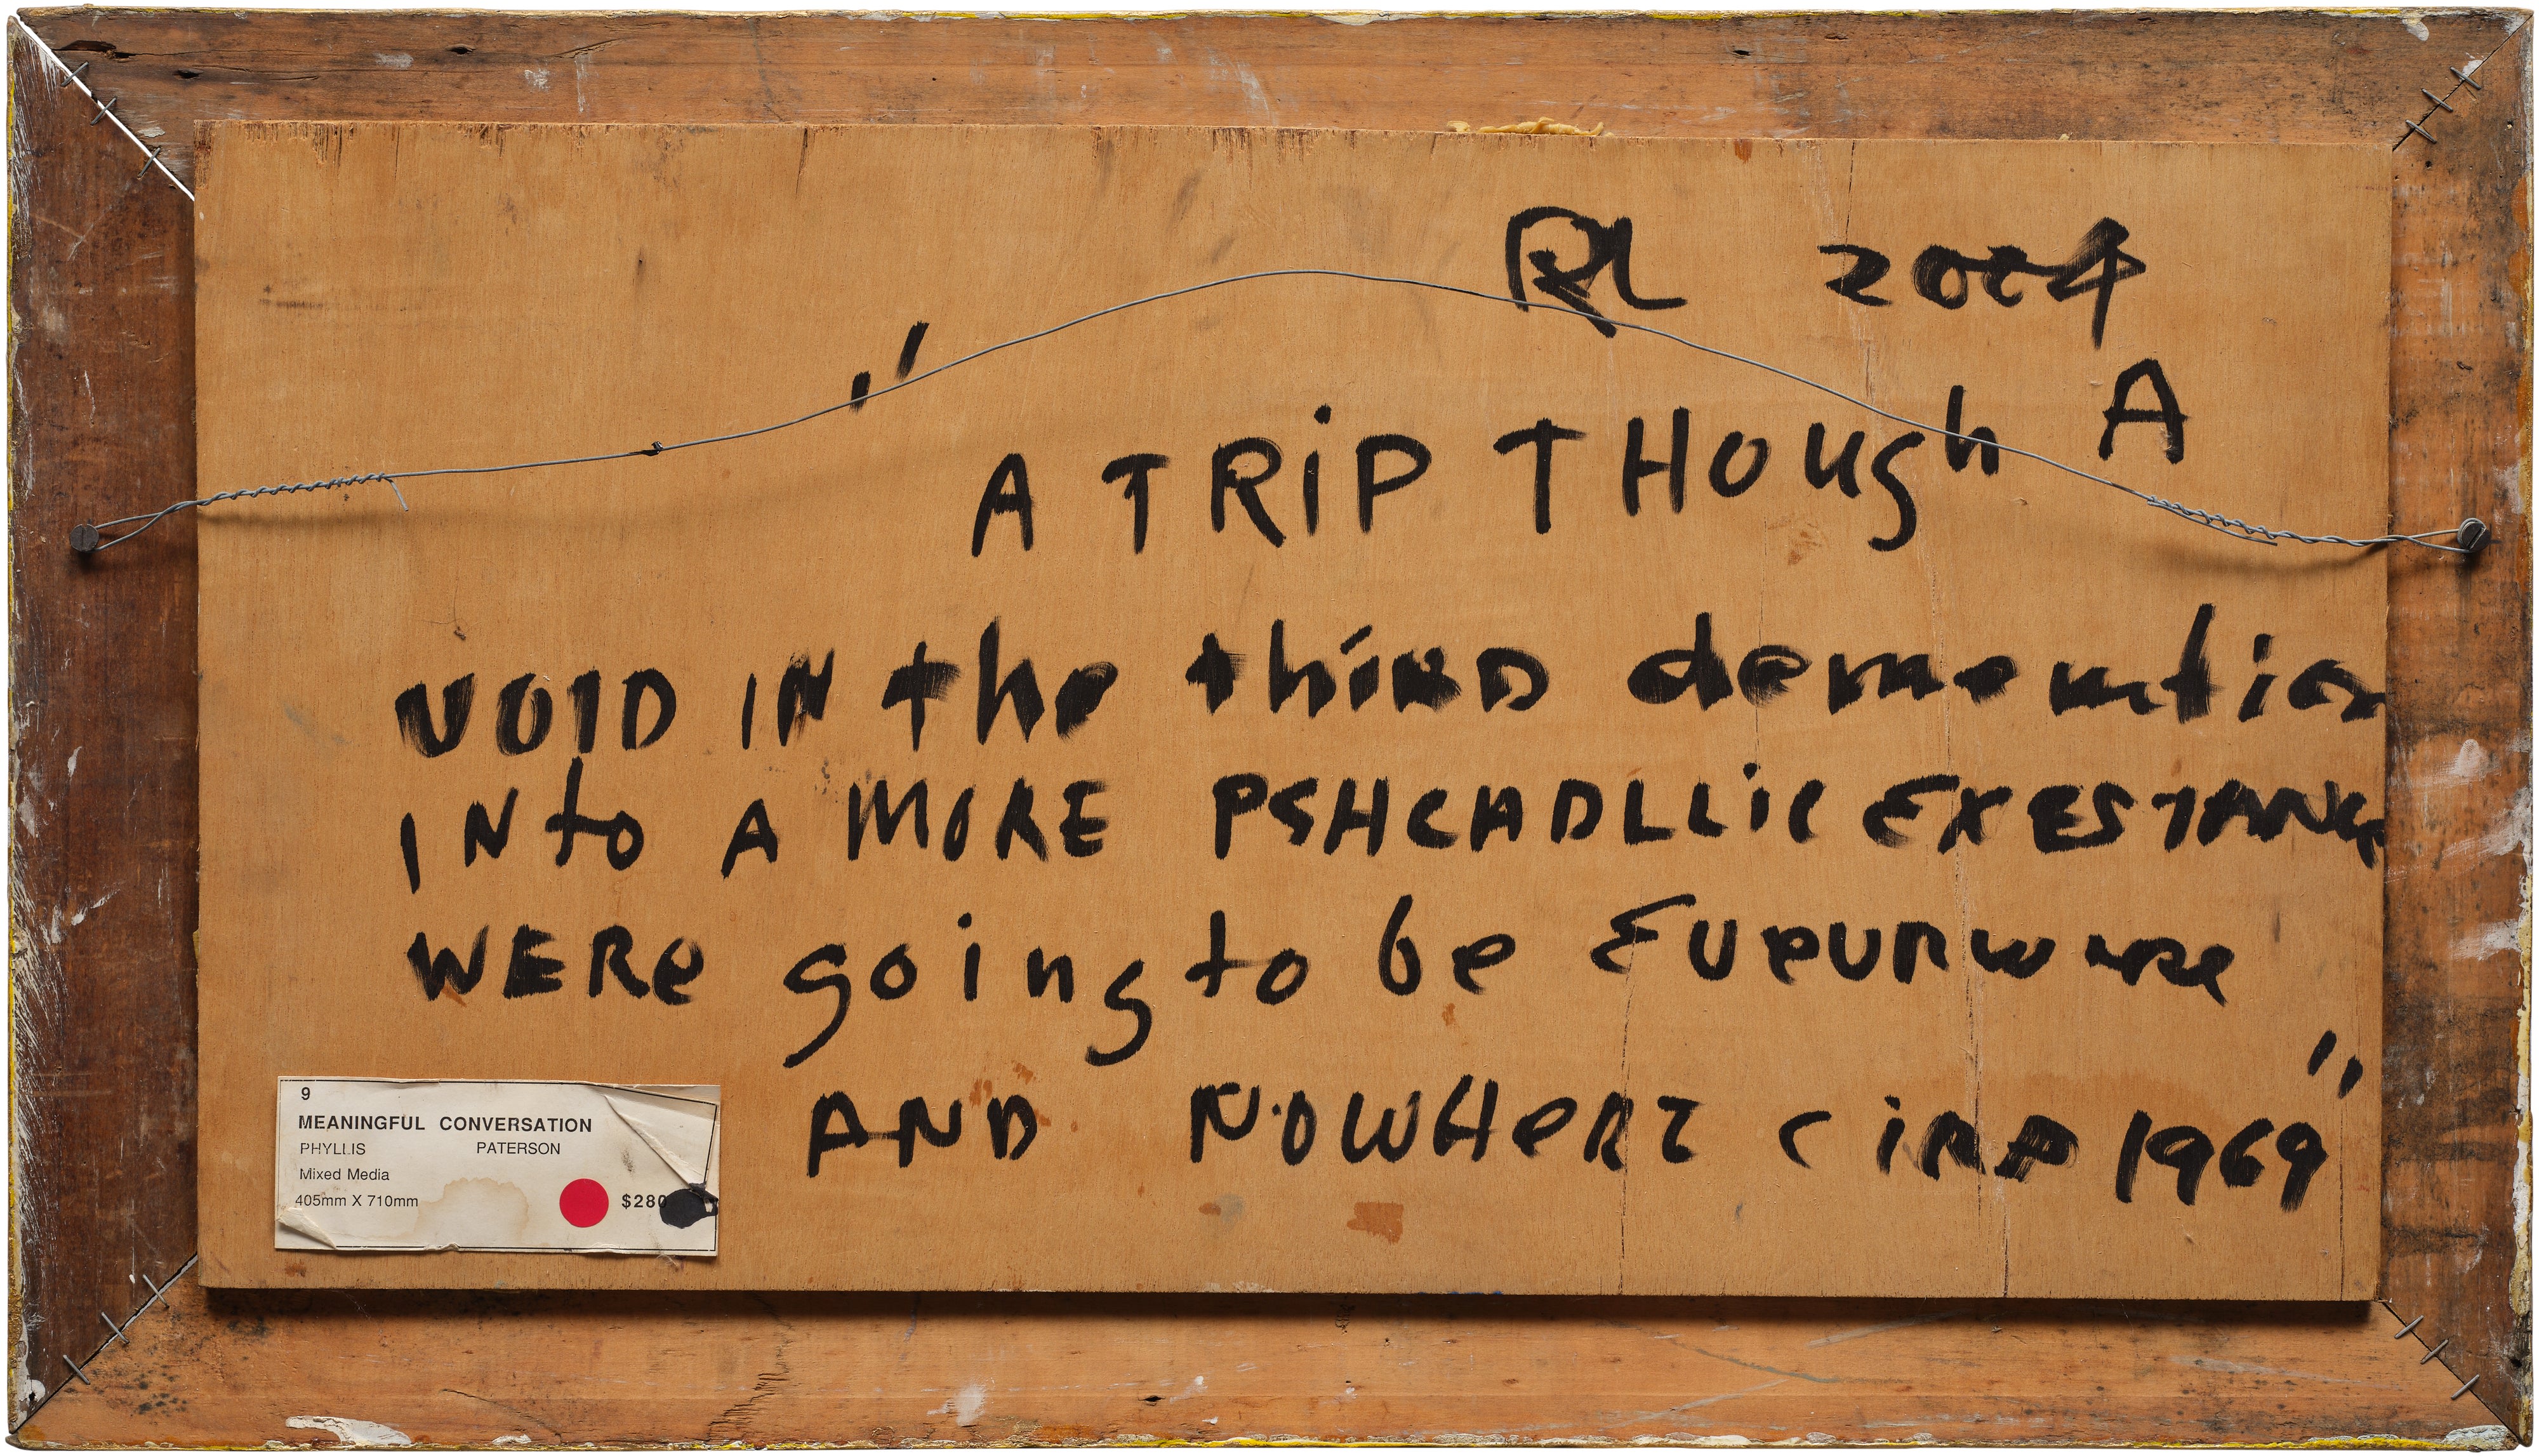 RL 2004
" A TRiP THOUgh A
VOID IN the thiRD demention
INto A MORE PSHCADLLiC EXESTANCE
WERe going to be
AND NOWHeRE CiRA 1969"
9
MEANINGFUL CONVERSATION
PHYLLIS PATERSON
Mixed Media
405mm X 710mm $280